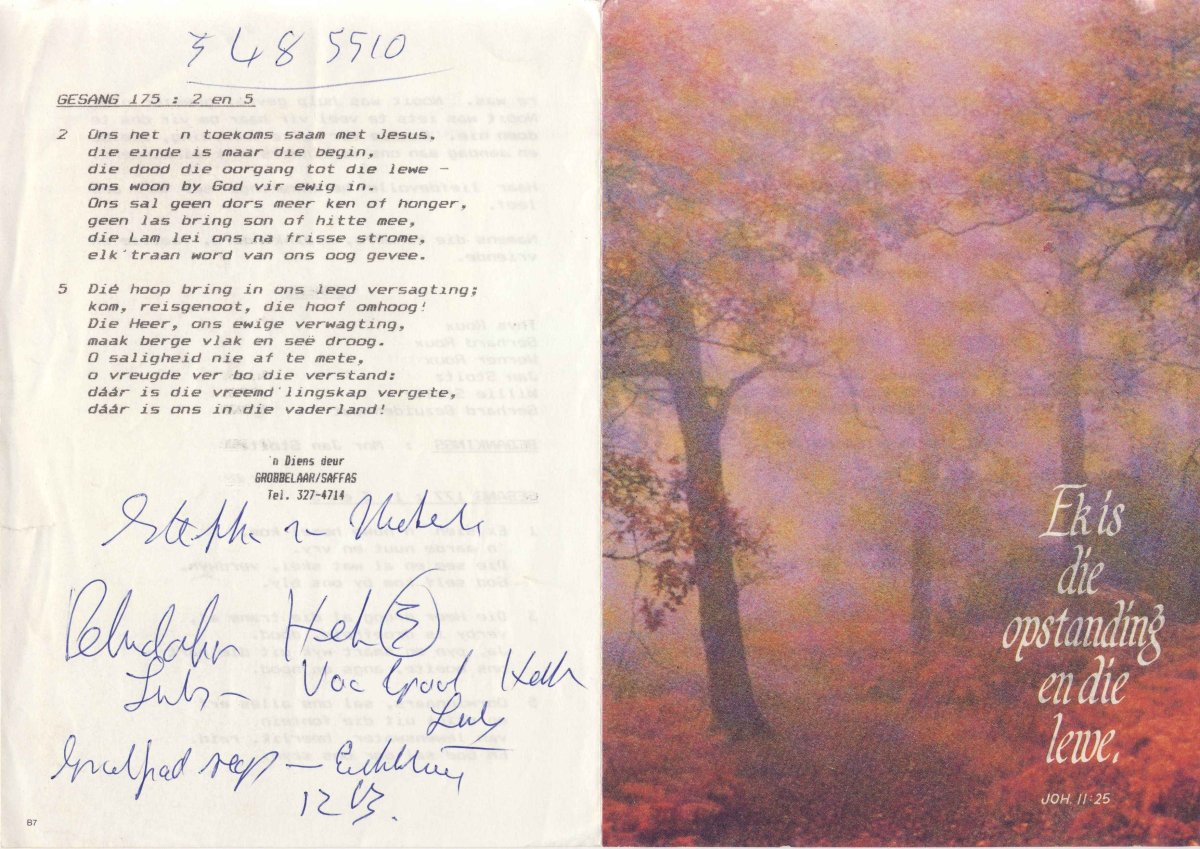 348 5510
GESANG 175 : 2 en 5
2 Ons het 'n toekoms saam met Jesus,
die einde is maar die begin,
die dood die oorgang tot die lewe -
ons woon by God vir ewig in.
Ons sal geen dors meer ken of honger,
geen las bring son of hitte mee,
die Lam lei ons na frisse strome,
elk traan word van ons oog gevee.
5 Dié hoop bring in ons leed versagting;
kom, reisgenoot, die hoof omhoog!
Die Heer, ons ewige verwagting,
maak berge vlak en seë droog.
O saligheid nie af te mete,
o vreugde ver bo die verstand:
dáár is die vreemd'lingskap vergete,
dáár is ons in die vaderland!
'n Diens deur
GROBBELAAR/SAFFAS
Tel. 327-4714
Links
Links
B7
Ek is
die
opstanding
en die
lewe.
JOH. 11:25